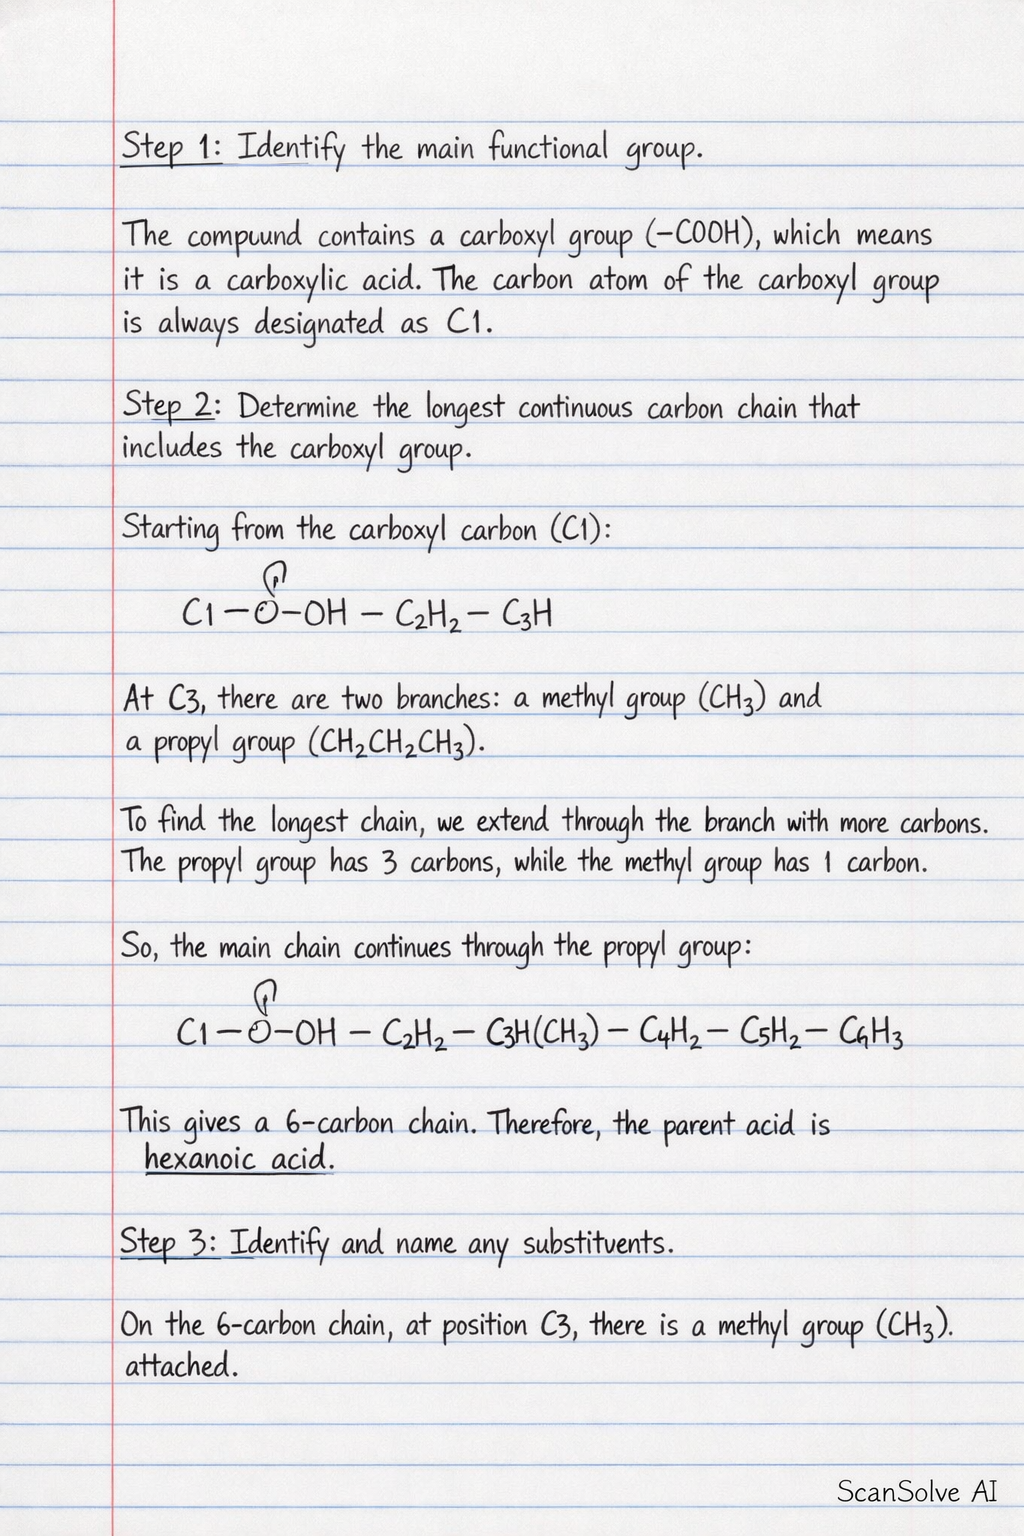 Step 1: Identify the main functional group.
The compound contains a carboxyl group (–COOH), which means
it is a carboxylic acid. The carbon atom of the carboxyl group
is always designated as C1.
Step 2: Determine the longest continuous carbon chain that
includes the carboxyl group.
Starting from the carboxyl carbon (C1):
C1 – O – OH – C₂H₂ – C₃H
At C3, there are two branches: a methyl group (CH₃) and
a propyl group (CH₂CH₂CH₃).
To find the longest chain, we extend through the branch with more carbons.
The propyl group has 3 carbons, while the methyl group has 1 carbon.
So, the main chain continues through the propyl group:
C1 – O – OH – C₂H₂ – C3H(CH₃) – C₄H₂ – C5H₂ – C₆H₃
This gives a 6-carbon chain. Therefore, the parent acid is
hexanoic acid.
Step 3: Identify and name any substituents.
On the 6-carbon chain, at position C3, there is a methyl group (CH₃).
attached.
ScanSolve AI